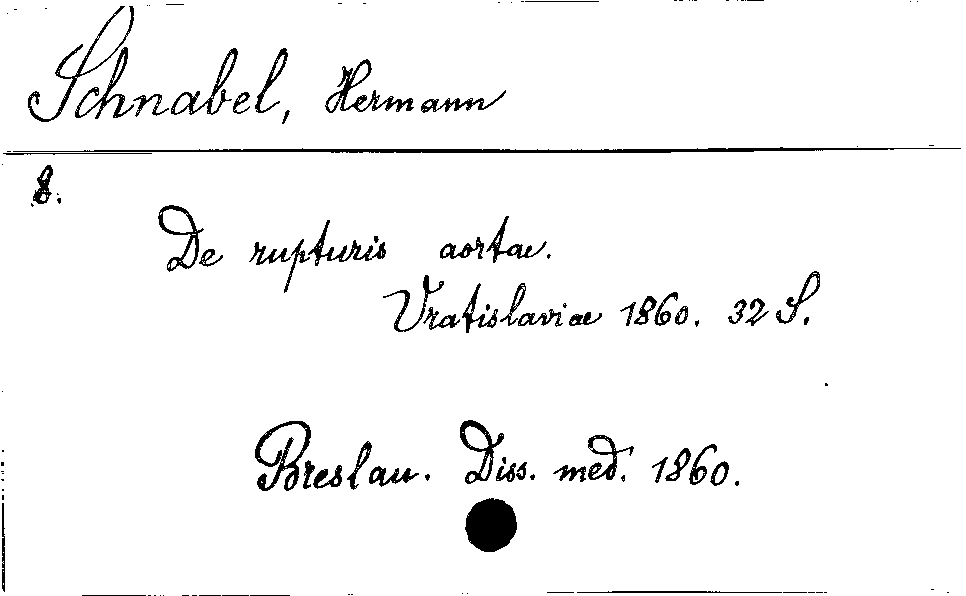 Schnabel, Hermann
8.
De rupturis aortae.
Vratislaviae 1860. 32 S.
Breslau. Diss. med. 1860.